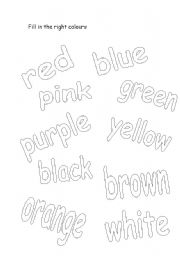 Fill in the right colours
red blue
pink green
purple yellow
black brown
orange white